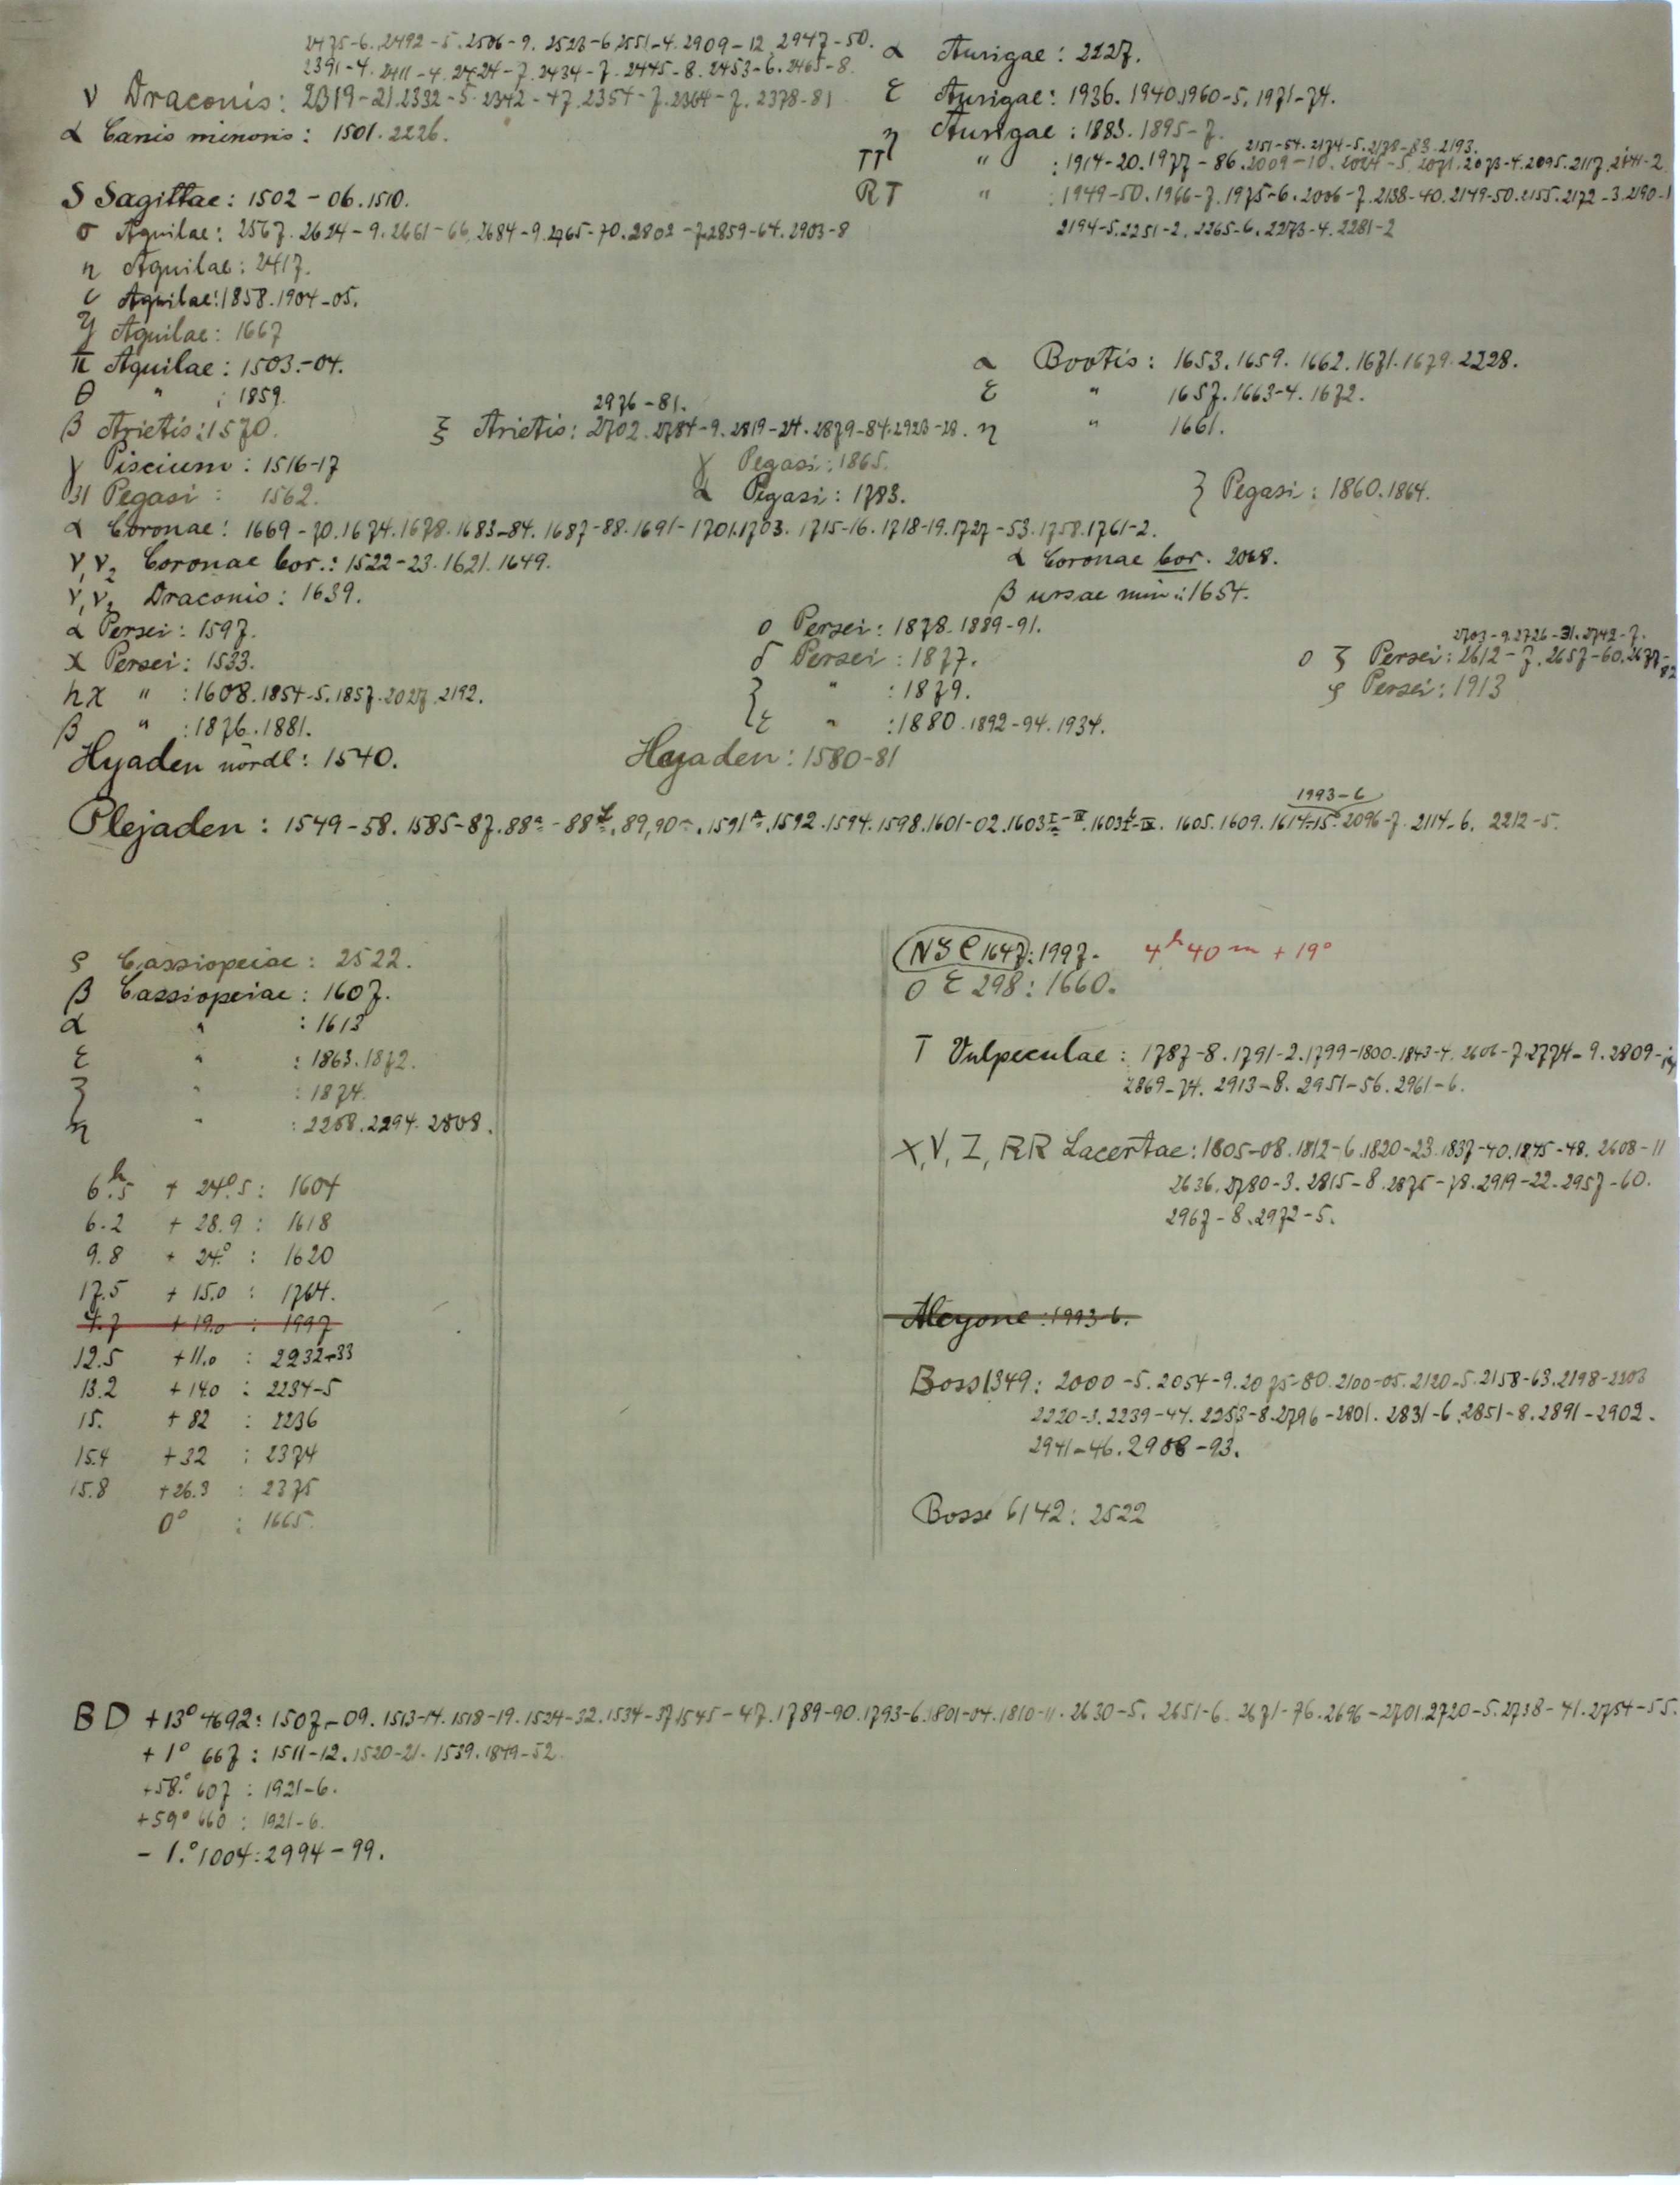 2475-6. 2492-5. 2506-9. 2523-6. 2551-4. 2909-12. 2947-50.
2391-4. 2411-4. 2424-7. 2434-7. 2445-8. 2453-6. 2465-8.
ν Draconis: 2319-21. 2332-5. 2342-47. 2354-7. 2364-7. 2378-81
α Canis minoris: 1501. 2226.
α Aurigae: 2227.
ε Aurigae: 1936. 1940. 1960-5. 1971-74.
η Aurigae: 1883. 1895-7.
2151-54. 2174-5. 2178-83. 2193.
TT " : 1914-20. 1977-86. 2009-10. 2024-5. 2071. 2073-4. 2095. 2117. 2141-2
RT " : 1949-50. 1966-7. 1975-6. 2006-7. 2138-40. 2149-50. 2155. 2172-3. 2190-1
2194-5. 2251-2. 2265-6. 2273-4. 2281-2
S Sagittae: 1502-06. 1510.
σ Aquilae: 2567. 2624-9. 2661-66. 2684-9. 2765-70. 2802-7. 2859-64. 2903-8
η Aquilae: 2417.
ι Aquilae: 1858. 1904-05.
Aquilae: 1667
π Aquilae: 1503-04.
θ " : 1859.
β Arietis: 1570.
2976-81.
ξ Arietis: 2702. 2784-9. 2819-24. 2879-84. 2923-28.
α Bootis: 1653. 1659. 1662. 1671. 1679. 2228.
ε " 1657. 1663-4. 1672.
η " 1661.
γ Piscium: 1516-17
31 Pegasi: 1562.
γ Pegasi: 1865.
α Pegasi: 1783.
ζ Pegasi: 1860. 1864.
α Coronae: 1669-70. 1674. 1678. 1683-84. 1687-88. 1691-1701. 1703. 1715-16. 1718-19. 1727-53. 1758. 1761-2.
ν, ν2 Coronae bor.: 1522-23. 1621. 1649.
α Coronae bor. 2068.
ν, ν2 Draconis: 1639.
β ursae min.: 1654.
α Persei: 1597.
χ Persei: 1533.
hχ " : 1608. 1854-5. 1857. 2027. 2192.
β " : 1876. 1881.
ο Persei: 1878. 1889-91.
δ Persei: 1877.
ζ " : 1879.
ε " : 1880. 1892-94. 1934.
2703-9. 2726-31. 2742-7.
ο ζ Persei: 2612-7. 2657-60. 2677-82
φ Persei: 1913
Hyaden nördl: 1540.
Hyaden: 1580-81
1993-6
Plejaden: 1549-58. 1585-87. 88a-88f. 89, 90a. 1591a. 1592. 1594. 1598. 1601-02. 1603 I-IV. 1605. 1609. 1614-15. 2096-7. 2114-6. 2212-5.
ρ Cassiopeiae: 2522.
β Cassiopeiae: 1607.
α " : 1613
ε " : 1863. 1872.
ζ " : 1874.
η " : 2258. 2294. 2808.
6h.5 + 24°.5: 1604
6.2 + 28.9: 1618
9.8 + 24°: 1620
17.5 + 15.0: 1764.
4.7 + 19.0: 1997
12.5 + 11.0: 2232-33
13.2 + 14.0: 2234-5
15. + 82: 2236
15.4 + 32: 2374
15.8 + 26.3: 2375
0°: 1665.
NGC 1647: 1997. 4h 40m + 19°
O Σ 298: 1660.
T Vulpeculae: 1787-8. 1791-2. 1799-1800. 1843-4. 2606-7. 2774-9. 2809-14
2869-74. 2913-8. 2951-56. 2961-6.
X, V, Z, RR Lacertae: 1805-08. 1812-6. 1820-23. 1837-40. 1845-48. 2608-11
2636. 2780-3. 2815-8. 2875-78. 2919-22. 2957-60.
2967-8. 2972-5.
Alcyone: 1993-6.
Boss 1349: 2000-5. 2054-9. 2075-80. 2100-05. 2120-5. 2158-63. 2198-2203
2220-3. 2239-44. 2253-8. 2796-2801. 2831-6. 2851-8. 2891-2902.
2941-46. 2988-93.
Bosse 6142: 2522
BD +13° 4692: 1507-09. 1513-14. 1518-19. 1524-32. 1534-37. 1545-47. 1789-90. 1793-6. 1801-04. 1810-11. 2630-5. 2651-6. 2671-76. 2696-2701. 2720-5. 2738-41. 2754-55.
+1° 667: 1511-12. 1520-21. 1539. 1849-52.
+58° 607: 1921-6.
+59° 660: 1921-6.
-1.° 1004: 2994-99.